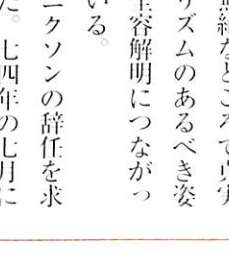 無縁なところで真実
リズムのあるべき姿
全容解明につながっ
いる。
ニクソンの辞任を求
た。七四年の七月に